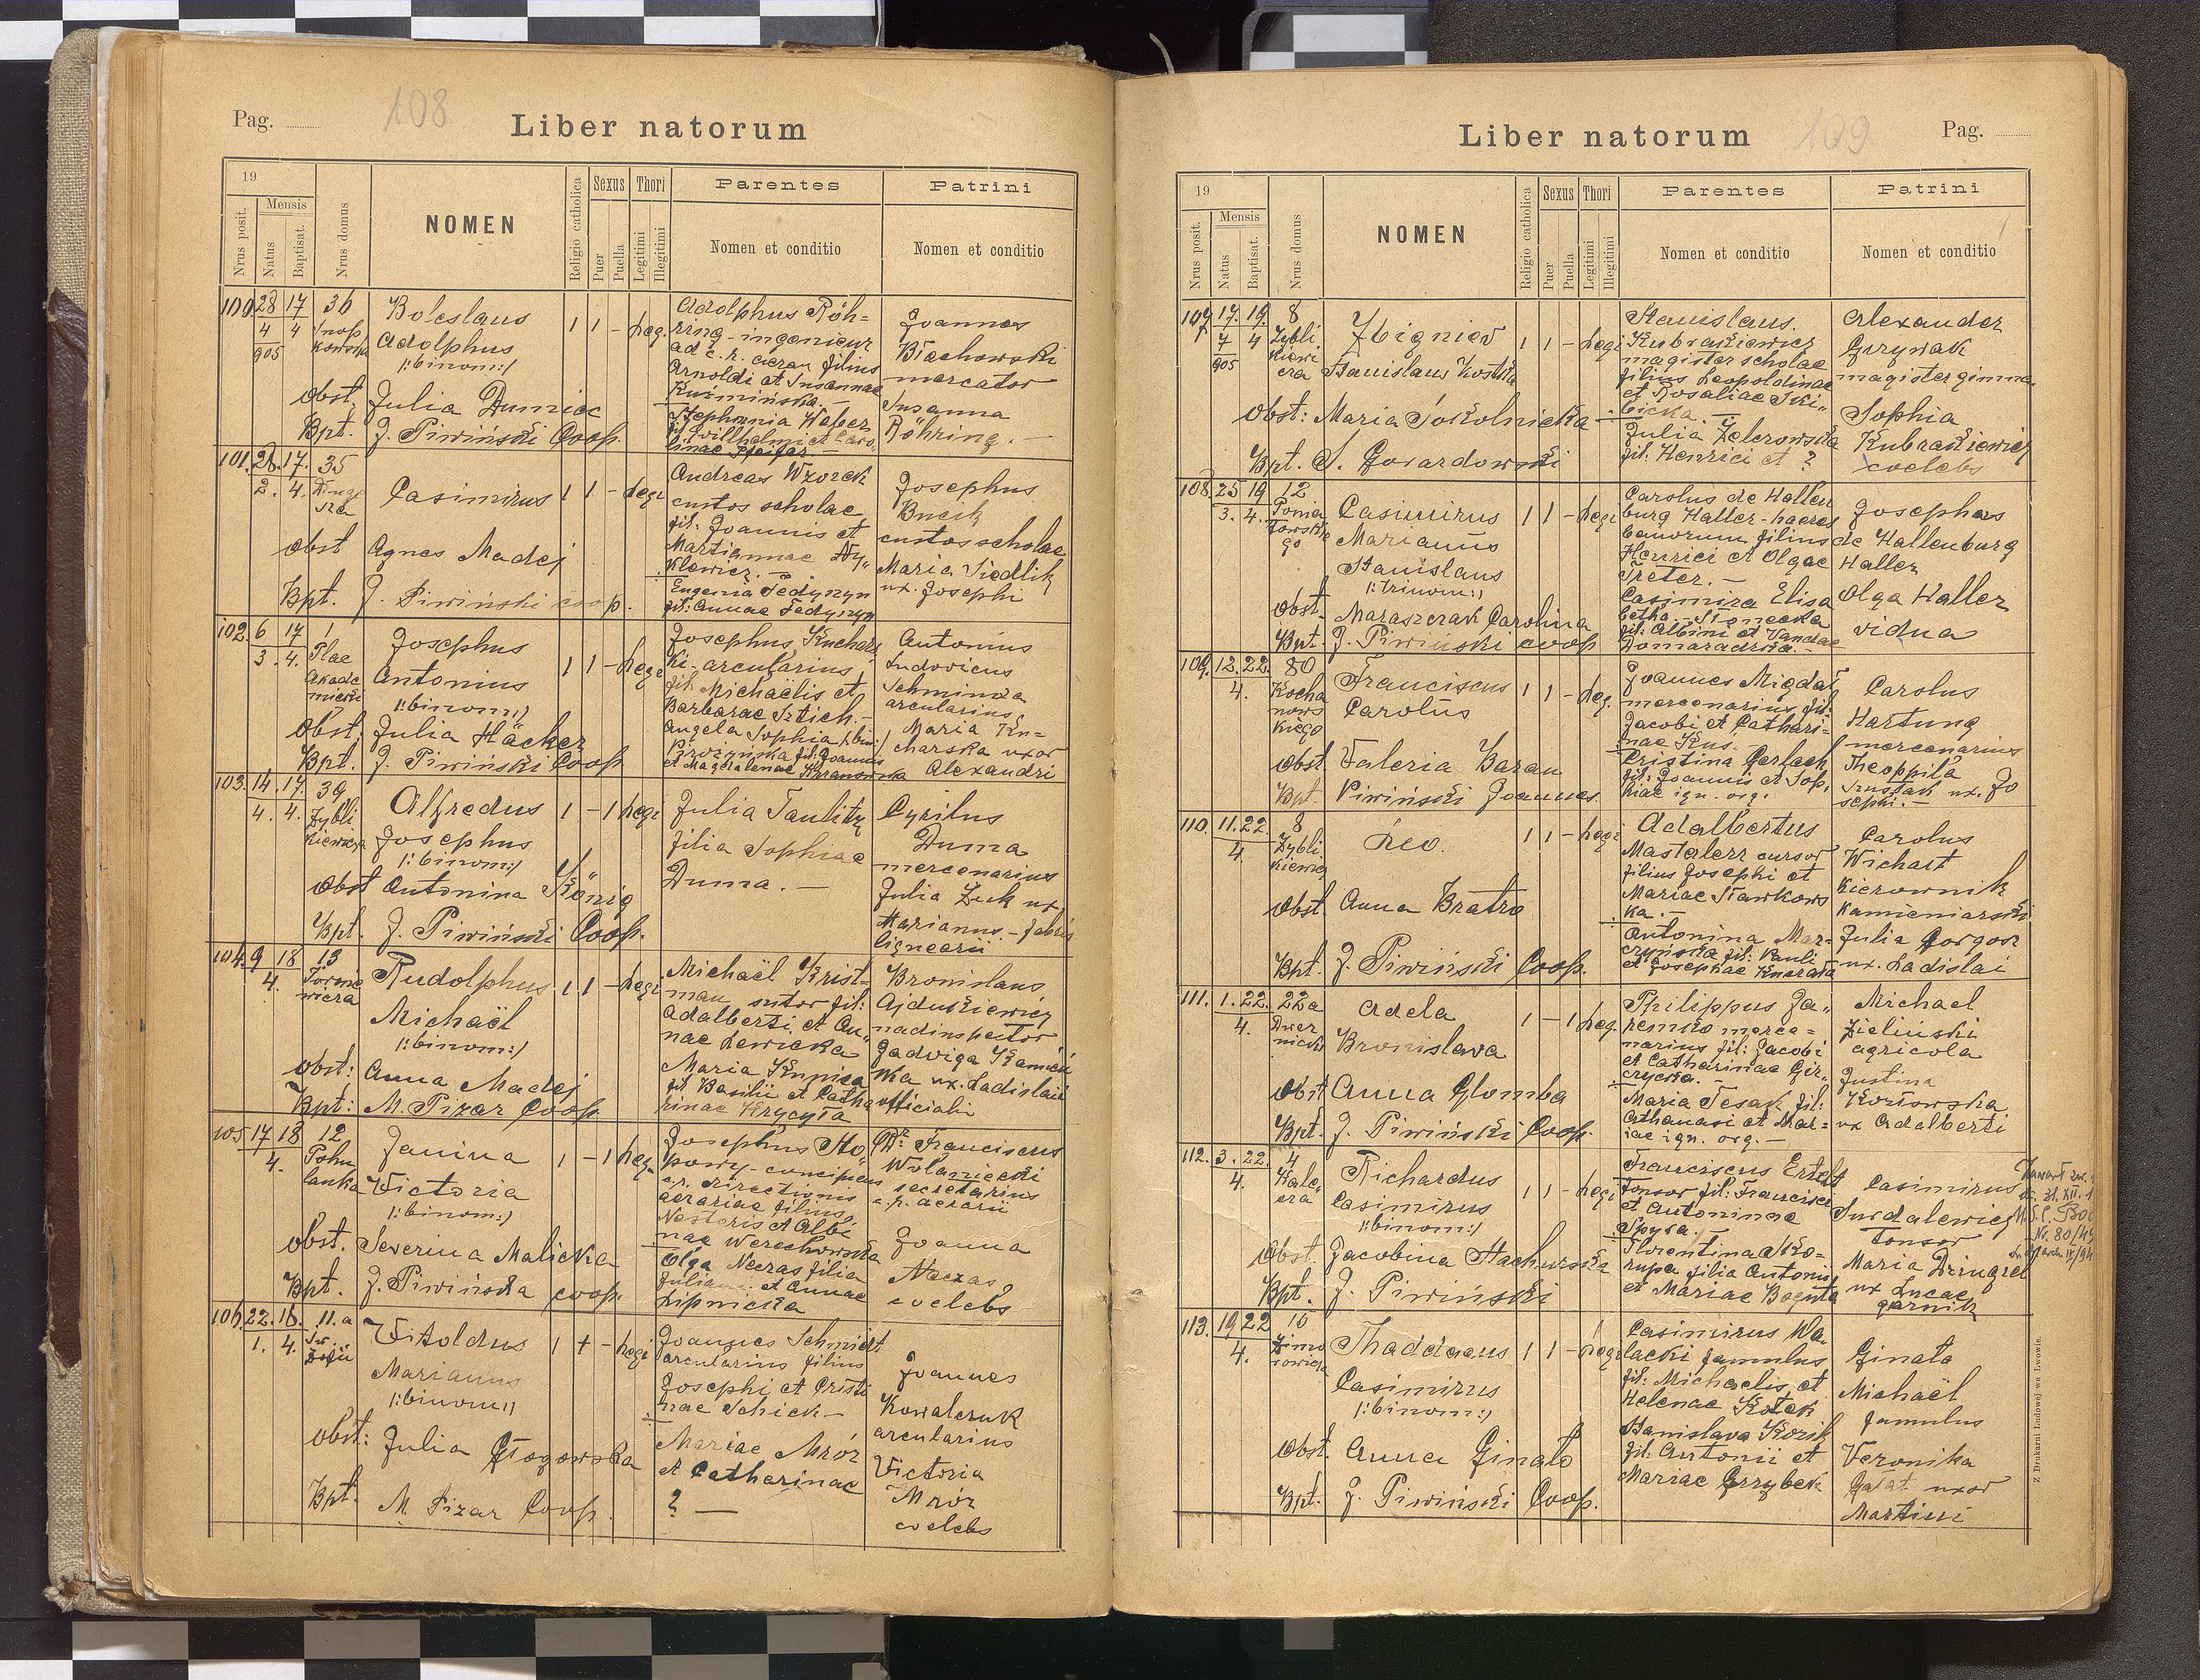 Pag.
108
Liber natorum
19
Nrus posit.
Mensis
Natus
Baptisat.
Nrus domus
NOMEN
Religio catholica
Sexus
Puer
Puella
Thori
Legitimi
Illegitimi
Parentes
Nomen et conditio
Patrini
Nomen et conditio
100 28 17 36
4 4
905
Boleslaus
Adolphus
/:binom:/
1 1 - Leg.
obst. Julia Dumiec
Bpt. J. Piwiński Coop.
Adolphus Röh=
ring - ingenieur
ad c. r. aerar filius
Arnoldi et Susannae
Kuźmińska. -
Stephania Weber
fil. Willhelmi et Caro
linae Pfeifer -
Joannes
Błachowski
mercator
Susanna
Röhring. -
101. 26. 17. 35
2. 4.
Casimirus 1 1 - Legi
obst Agnes Madej
Bpt. J. Piwiński coop.
Andreas Wzorek
custos scholae
fil: Joannis et
Mariannae Wy„
klewicz. -
Eugenia Fedyszyn
fil: Annae Fedyszyn
Josephus
custos scholae
Maria Siedlik
ux. Josephi
102. 6 17 1
3. 4. Plac
Akade
micki
Josephus
Antonius
/:binom:/
1 1 - Legi
Obst. Julia Häcker
Bpt. J. Piwiński Coop
Josephus Kuchars
ki - arcularius
fil. Michaëlis et
Barbarae Sztich. -
Angela Sophia /:bin:/
fil: Joannis
et Magdalenae
Antonius
Ludovicus
Schminda
arcularius,
Maria Ku=
charska uxor
Alexandri
103. 14. 17. 39
4. 4. Zybli
kiewicza
Alfredus
Josephus
/:binom:/
1 - 1 Legi
Obst Antonina König
Bpt. J. Piwiński Coop.
Julia Taulitz
filia Sophiae
Duma. -
Cyrilus
Duma
mercenarius
Julia Żuk ux.
Marianus - fabri
lignearii
104. 9 18 13
4.
Rudolphus
Michaël
/:binom:/
1 1 - Legi
obst: Anna Madej
Bpt: M. Pizar Coop
Michaël Krist=
man sutor fil:
Adalberti et An„
nae Lewicka
Maria Krupica
fil Basilii et Catha
rinae Krycyta
Bronislaus
Ajdukiewicz
nadinspector
Jadviga Kamień
ska ux. Ladislai
officiali
105 17 18 12
4. Pohu
lanka
Janina
Victoria
/:binom:/
1 - 1 Leg.
Obst. Severina Malicka
Bpt. J. Piwińska coop.
Josephus Sto„
powy - concipiens
c. r. directionis
aerariae filius
Nestoris et Albi
nae Werechowska
Olga Neczas filia
Juliani et Annae
Lipnicka
Dr. Franciscus
Wolaniecki
secretarius
c. r. aerarii
Joanna
Neczas
coelebs
106. 22. 18. 11.a
1. 4. Sw.
Zofii
Vitoldus
Marianus
/:binom:/
1 + - Legi
obst: Julia Głogowska
Bpt. M. Pizar Coop.
Joannes Schmidt
arcularius filius
Josephi et Cristi
nae Schick -
Mariae Mróz
et Catharinae
? -
Joannes
Kowalczuk
arcularius
Victoria
Mróz
coelebs
Liber natorum
109
Pag.
19
Nrus posit.
Mensis
Natus
Baptisat.
Nrus domus
NOMEN
Religio catholica
Sexus
Puer
Puella
Thori
Legitimi
Illegitimi
Parentes
Nomen et conditio
Patrini
Nomen et conditio
107 17. 19. 8
7 4 Zybli
905 kiewi
cza
Zbigniew
Stanislaus Kostka
1 1 - Legi
Obst: Maria Sokolnicka
Bpt. S. Gorardowski
Stanislaus.
Kubraķiewicz
magister scholae
filius Leopoldinae
et Rosaliae Ski„
bicka. -
Julia Zelerowska
fil: Henrici et ?
Alexander
Grzywak
magister gimna.
Sophia
Kubrakiewicz
coelebs
108. 25 19 12
3. 4. Ponia
towskie
go
Casimirus
Marianus
Stanislaus
/:trinom:/
1 1 - Legi
obst. Maraszczak Carolina
Bpt. J. Piwiński coop
Carolus de Hallen
burg Haller - haeres
bonorum filius
Henrici et Olgae
Treter. -
Casimira Elisa
betha
fil: Albini et Vandae
Domaradzka. -
Josephus
de Hallenburg
Haller
Olga Haller
vidua
109. 12. 22. 80
4. Kocha
nows
kiego
Franciscus
Carolus
1 1 - Leg.
obst Valeria Baran
Bpt. Piwiński Joannes.
Joannes Migdał
mercenarius fil:
Jacobi et Cathari=
nae Kus. -
Cristina Gerlach
fil: Joannis et Sop„
hiae ign. orig.
Carolus
Hartung
mercenarius
Theophila
ux. Jo
sephi. -
110. 11. 22. 8
4. Zybli
kiewicz
Leo. 1 1 - Legi
Obst. Anna Bratro
Bpt. J. Piwiński Coop.
Adalbertus
Mastalerz cursor
filius Josephi et
Mariae Sławkows
ka. -
Antonina Mar=
czyńska fil: Pauli
et Josephae Kucrata
Carolus
Wichart
Kierownik
kamieniarski
Julia Gorgosz
ux. Ladislai
111. 1. 22. 22a
4. Dwer
nicki
Adela
Bronislawa
1 - 1 Leg.
Obst Anna Glomba
Bpt. J. Piwiński Coop.
Philippus Ja„
remko merce=
narius fil: Jacobi
et Catharinae Gir„
czycka. -
Maria Tesak fil:
Athanasi et Mar=
iae ign. org. -
Michael
Zieliński
agricola
Justina
Kozłowska
ux Adalberti
112. 3. 22. 4
4. Kale„
cza
Richardus
Casimirus
/:binom:/
1 1 - Legi
Obst. Jacobina Stachurska
Bpt. J. Piwiński
Franciscus Ertelt
tonsor fil: Francisci
et Antoninae
Spyra. -
Florentina Sko=
rupa filia Antonii
et Mariae Bogenta
Casimirus
Surdalewicz
tonsor
Maria Dzingiel
ux Lucae
garnik
Zawart zw.
31. XII. 1
Nr. 80/45
113. 19 22 15
4. Zimo
rowicza
Thaddaeus
Casimirus
/:binom:/
1 1 - Legi
Obst. Anna Ginato
Bpt. J. Piwiński Coop.
Casimirus Wa„
lacki famulus
fil: Michaelis et
Helenae Kotek
Stanislava Kozik
fil: Antonii et
Mariae Grzybek
Ginato
Michaël
famulus
Veronika
Gałat uxor
Martini
Z Drukarni Ludowej we Lwowie.